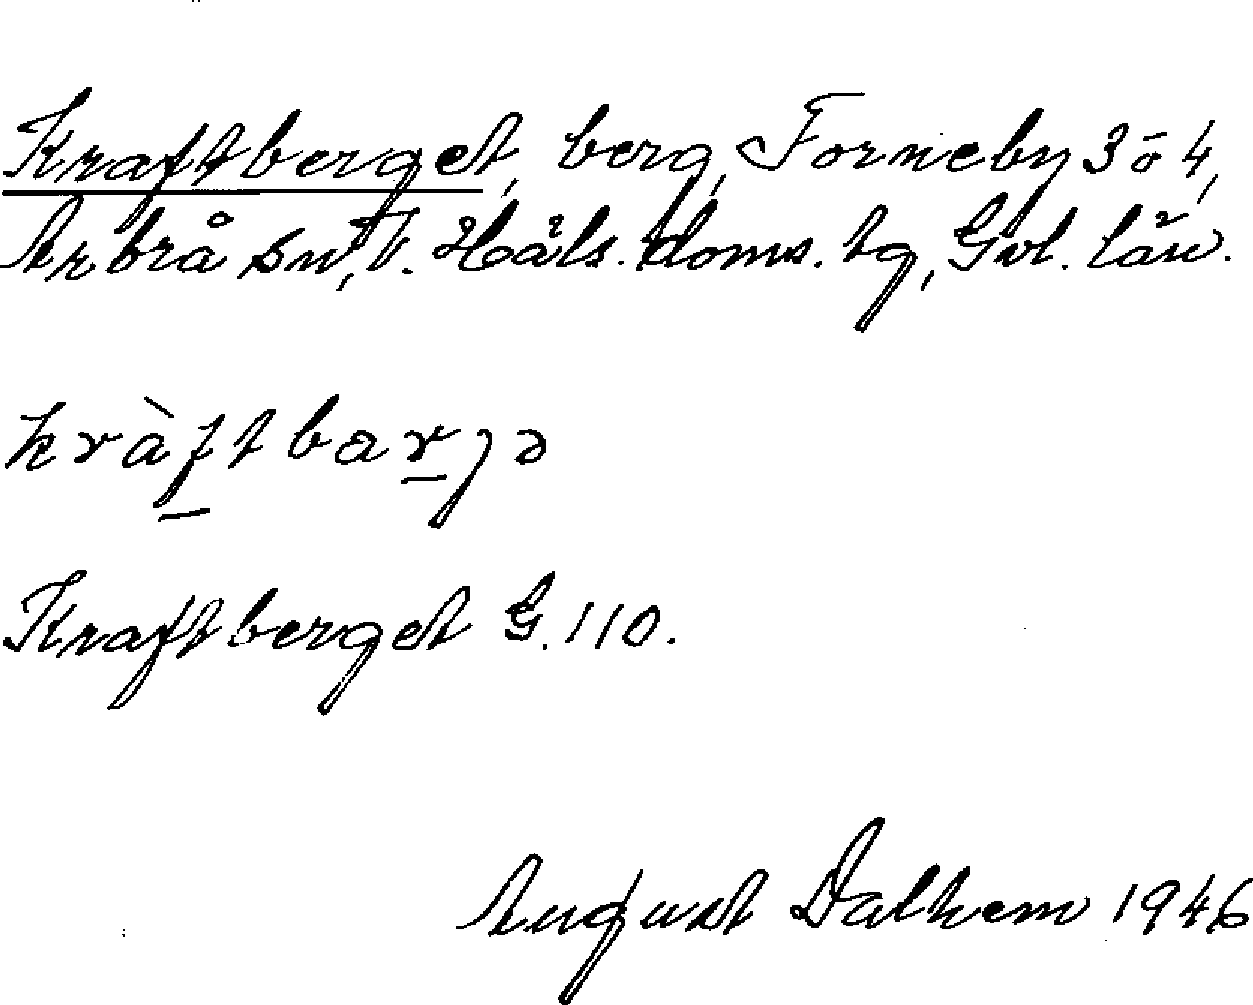 Kraftberget, berg, Forneby 3 o 4,
Arbrå sn, V. Häls. doms. tg, Gvl. län.
kràftbarjə
Kraftberget G. 110.
August Dalhem 1946